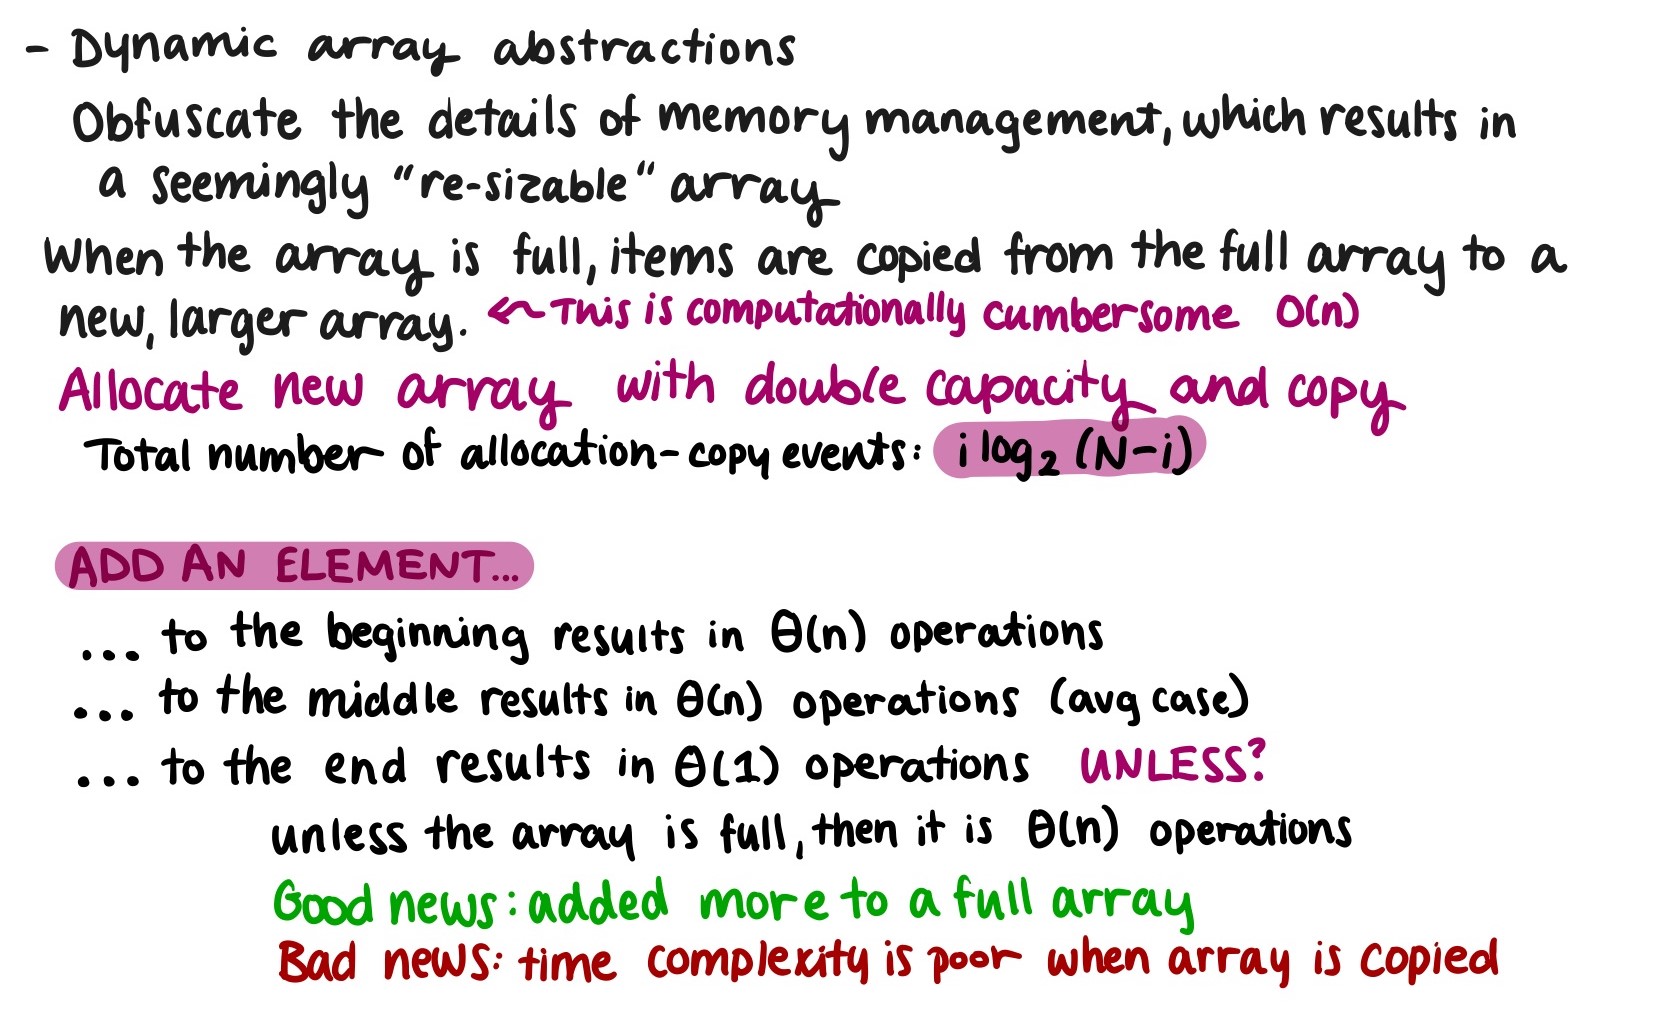 - Dynamic array abstractions
Obfuscate the details of memory management, which results in
a seemingly "re-sizable" array
When the array is full, items are copied from the full array to a
new, larger array. ← This is computationally cumbersome O(n)
Allocate new array with double capacity and copy
Total number of allocation-copy events: i log₂ (N-i)
ADD AN ELEMENT...
... to the beginning results in Θ(n) operations
... to the middle results in Θ(n) operations (avg case)
... to the end results in Θ(1) operations UNLESS?
unless the array is full, then it is Θ(n) operations
Good news: added more to a full array
Bad news: time complexity is poor when array is copied